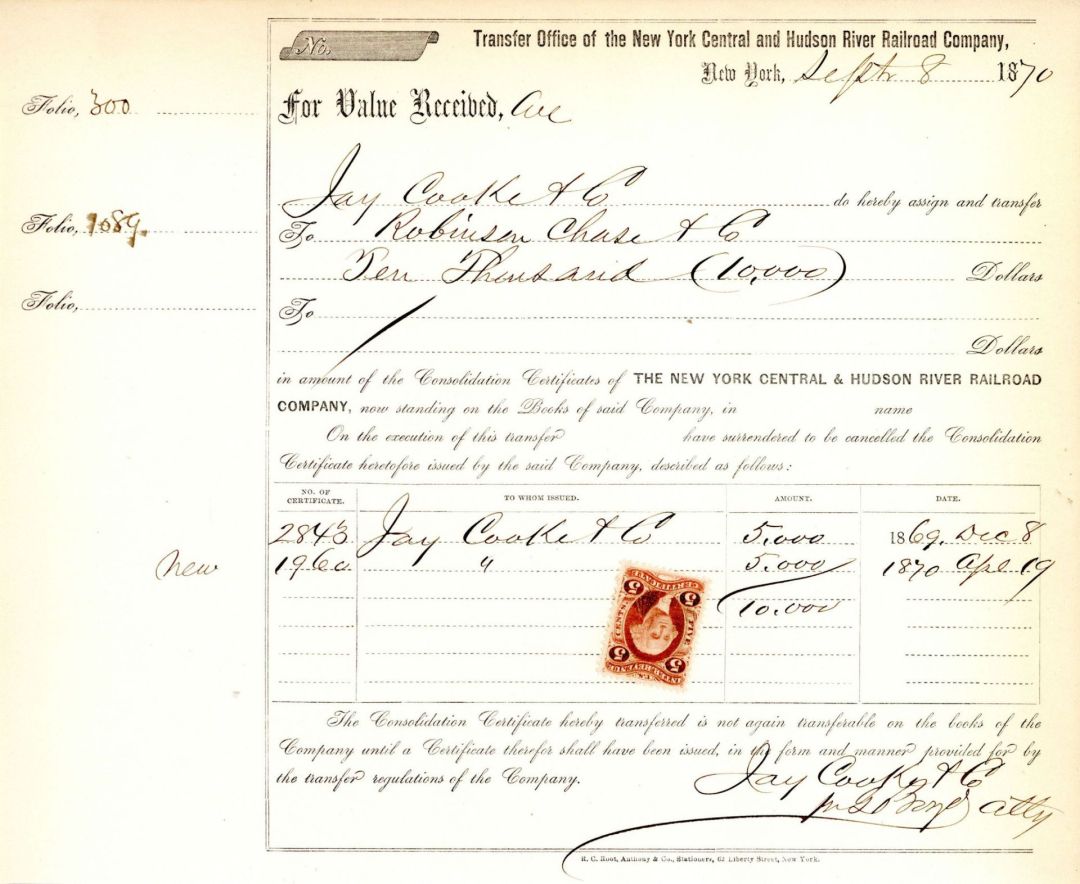 No.
Transfer Office of the New York Central and Hudson River Railroad Company,
New York, Septr 8 1870
Folio, 300
For Value Received, We
Jay Cooke & Co do hereby assign and transfer
Folio, 1089.
To Robinson Chase & Co
Ten Thousand (10,000) Dollars
Folio,
To
Dollars
in amount of the Consolidation Certificates of THE NEW YORK CENTRAL & HUDSON RIVER RAILROAD
COMPANY, now standing on the Books of said Company, in name
On the execution of this transfer have surrendered to be cancelled the Consolidation
Certificate heretofore issued by the said Company, described as follows:
NO. OF CERTIFICATE. TO WHOM ISSUED. AMOUNT. DATE.
2843 Jay Cooke & Co 5.000 1869. Dec 8
new 1960 " 5.000 1870 Apl 19
10.000
CERTIFICATE
5 5
CENTS FIVE
5 5
INTER. REVENUE
The Consolidation Certificate hereby transferred is not again transferable on the books of the
Company until a Certificate therefor shall have been issued, in the form and manner provided for by
the transfer regulations of the Company.
Jay Cooke & Co
atty
R. C. Root, Anthony & Co., Stationers, 62 Liberty Street, New York.